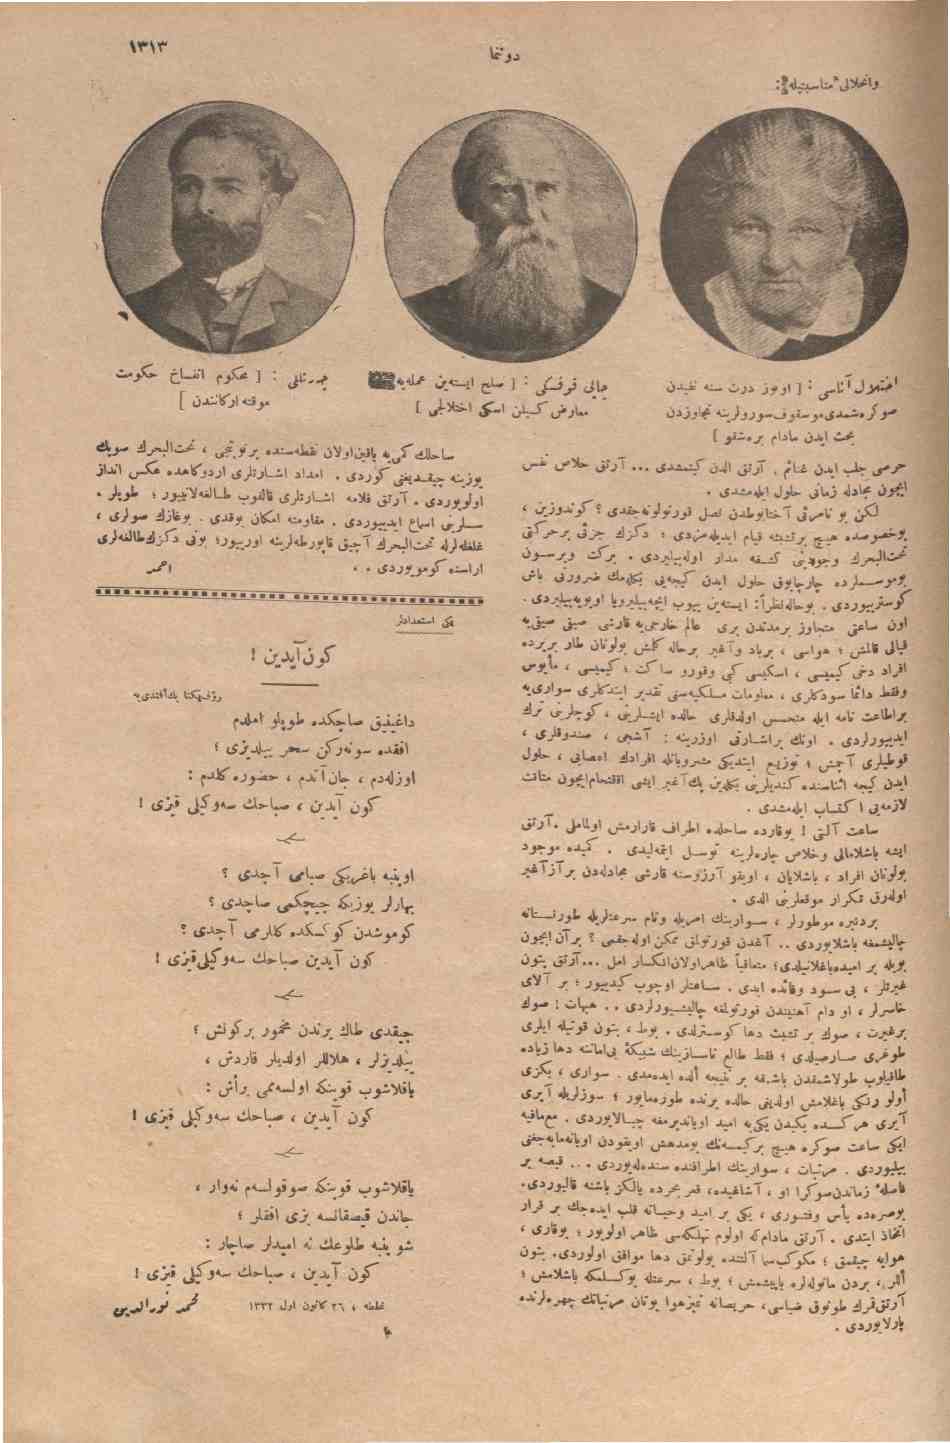 ١٣١٣
دوننما
وانحلالى مناسبتيله :
اختلال آناسى : [ اوتوز درت سنه نفيدن
صوكره شمدى موسقوف سورولرينه تجاوزدن
بحث ايدن مادام بره شقو ]
[ صلح ايسته ين عمله يه
معارض كسيلن اسكى اختلالجى ]
[ محكوم انفساخ حكومت
موقته اركانندن ]
حرصى جلب ايدن غنائم . آرتق الدن كيتمشدى ... آرتق خلاص نفس
ايچون مجادله زمانى حلول ايله مشدى .
لكن بو نامرئى آختابوطدن نصل قورتولونه جقدى ؟ كوندوزين ،
بوخصوصده هيچ برتشبثه قيام ايديله مزدى ؛ دكزك جزئى برحركتى
تحت البحرك وجودينى كشفه مدار اوله بيليردى . بركت ويرسون
بوموسملرده چارچابوق حلول ايدن كيجه يى بكله مك ضرورتى باش
كوستريوردى . بوحاله نظراً : ايسته ين ييوب ايچه بيليرويا اويويه بيليردى .
اون ساعتى متجاوز برمدتدن برى عالم خارجى يه قارشى صيقى صيقى يه
قپالى قالمش ؛ هواسى ، برباد وآغير برحاله كلمش بولونان طار بريرده
افراد دخى كيميسى ، اسكيسى كبى وقورو ساكت ؛ كيميسى ، مأيوس
وفقط دائما سودكلرى ، معلومات مسلكيه سنى تقدير ايتدكلرى سوارى يه
براطاعت تامه ايله متحسس اولدقلرى حالده ايشلرينى ، كوچلرينى ترك
ايدييورلردى . اونك براشارتى اوزرينه : آشجى ، صندوقلرى ،
قوطيلرى آچمش ؛ توزيع ايتديكى مشروباتله افرادك اعصابى ، حلول
ايدن كيجه اثناسنده كنديلرينى بكله ين پك آغير ايشى اقتحام ايچون متانت
لازمه يى اكتساب ايله مشدى .
ساعت آلتى ! يوقارده ساحلده اطراف قارارمش اولماملى . آرتق
ايشه باشلامالى وخلاص چاره لرينه توسل ايتمه ليدى . كميده موجود
بولونان افراد ، باشلايان ، اويقو آرزوسنه قارشى مجادله دن برآز آغير
اوله رق تكرار موقعلرينى الدى .
بردنبره موطورلر ، سوارينك امريله وتام سرعتلريله طورنستانه
چاليشمغه باشلايوردى .. آغدن قورتولمق ممكن اوله جقمى ؟ برآن ايچون
بويله بر اميده باغلانيلدى ؛ متعاقباً ظاهر اولان انكسار امل ... آرتق بتون
غيرتلر ، بى سود وفائده ايدى . ساعتلر اوچوب كيدييور ؛ بر آلاى
خاسرلر ، او دام آهنيندن قورتولغه چاليشييورلردى .. هيهات : صوك
برغيرت ، صوك بر تشبث دها كوسترلدى . بوط ، بتون قوتيله ايلرى
طوغرى صارصيلدى ؛ فقط طالع ناسازينك شبكۀ بى امانته دها زياده
طاقيلوب طولاشمقدن باشقه بر نتيجه ألده ايده مدى . سوارى ، بكزى
أولو رنكى باغلامش اولديغى حالده يرنده طوره مايور ؛ سوزلريله آيرى
آيرى هركسده يكيدن يكى يه اميد اوياندیرمغه چبالايوردى . مع مافيه
ايكى ساعت صوكره هيچ بركيمسه نك بومدهش اويقودن اويانه مايه جغنى
بيليوردى . مرتبات ، سوارينك اطرافنده سنده له يوردى . .. قيصه بر
فاصلۀ زماندن صوكرا او ، آشاغيده ، قعر بحرده يالكز باشنه قاليوردى .
بوصره ده يأس وفتورى ، يكى بر اميد وحياته قلب ايده جك بر قرار
اتخاذ ايتدى . آرتق مادامكه اولوم تهلكه سى ظاهر اولويور ؛ يوقارى ،
هوايه چيقمق ؛ مكوكب سما آلتنده بولونمق دها موافق اولوردى . بتون
أللر ، بردن مانوله لره ياپيشمش ؛ بوط ، سرعتله يوكسلمكه باشلامش ؛
آرتق قمرك طونوق ضياسى ، حريصانه تميز هوا يوتان مرتباتك چهره لرنده
پارلايوردى .
ساحلك كمى يه ياقين اولان نقطه سنده برنوبتجى ، تحت البحرك صويك
يوزينه چيقديغنى كوردى . امداد اشارتلرى اردوكاهده عكس انداز
اولويوردى . آرتق فلامه اشارتلرى قالقوب طالغه لانييور ؛ طوپلر .
سسلرينى اسماع ايدييوردى . مقاومته امكان يوقدى . بوغازك صولرى ،
غلغله لرله تحت البحرك آچيق قاپورطه لرينه اورييور ؛ بونى دكزك طالغه لرى
اراسنه كومويوردى . .
احمد
يكى استعدادلر
كون آيدين !
داغينيق صاچكده طوپلو املدم
افقده سونه ركن سحر ييلديزى ؛
اوزله دم ، جان آتدم ، حضوره كلدم :
كون آيدين ، صباحك سه وكيلى قيزى !
اوپنبه باغريكى صبامى آچدى ؟
بهارلر يوزيكه چيچكمى صاچدى ؟
كوموشدن كوكسكده كللرمى آچدى ؟
كون آيدين صباحك سه وكيلى قيزى !
چيقدى طاك يرندن مخمور بركونش ؛
ييلديزلر ، هلاللر اولديلر قاردش ،
ياقلاشوب قوينكه اولسه ممى برأش :
كون آيدين ، صباحك سه وكيلى قيزى !
ياقلاشوب قوينكه صوقولسه م نه وار ،
جاندن قيصقانسه بزى افقلر ؛
شو پنبه طلوعك نه اميدلر صاچار :
كون آيدين ، صباحك سه وكيلى قيزى !
غلطه ، ٢٦ كانون اول ١٣٣٢
محمد نورالدين